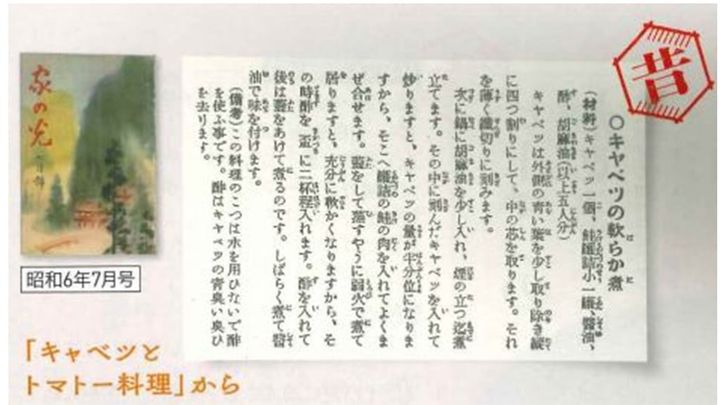 昔
○キャベツの軟らか煮
(材料)キャベツ一個、鮭罐詰小一罐、醬油、
酢、胡麻油(以上五人分)
キャベツは外側の靑い葉を少し取り除き縱
に四つ割りにして、中の芯を取ります。それ
を薄く纖切りに刻みます。
次に鍋に胡麻油を少し入れ、煙の立つ迄煮
立てます。その中に刻んだキャベツを入れて
炒りますと、キャベツの量が半分位になりま
すから、そこへ罐詰の鮭の肉を入れてよくま
ぜ合せます。蓋をして蒸すやうに弱火で煮て
居りますと、充分に軟かくなりますから、そ
の時酢を盃に二杯程入れます。酢を入れて
後は蓋をあけて煮るのです。しばらく煮て醬
油で味を付けます。
(備考)この料理のこつは水を用ひないで酢
を使ふ事です。酢はキャベツの靑臭い臭ひ
を去ります。
家の光
昭和6年7月号
「キャベツと
トマトー料理」から